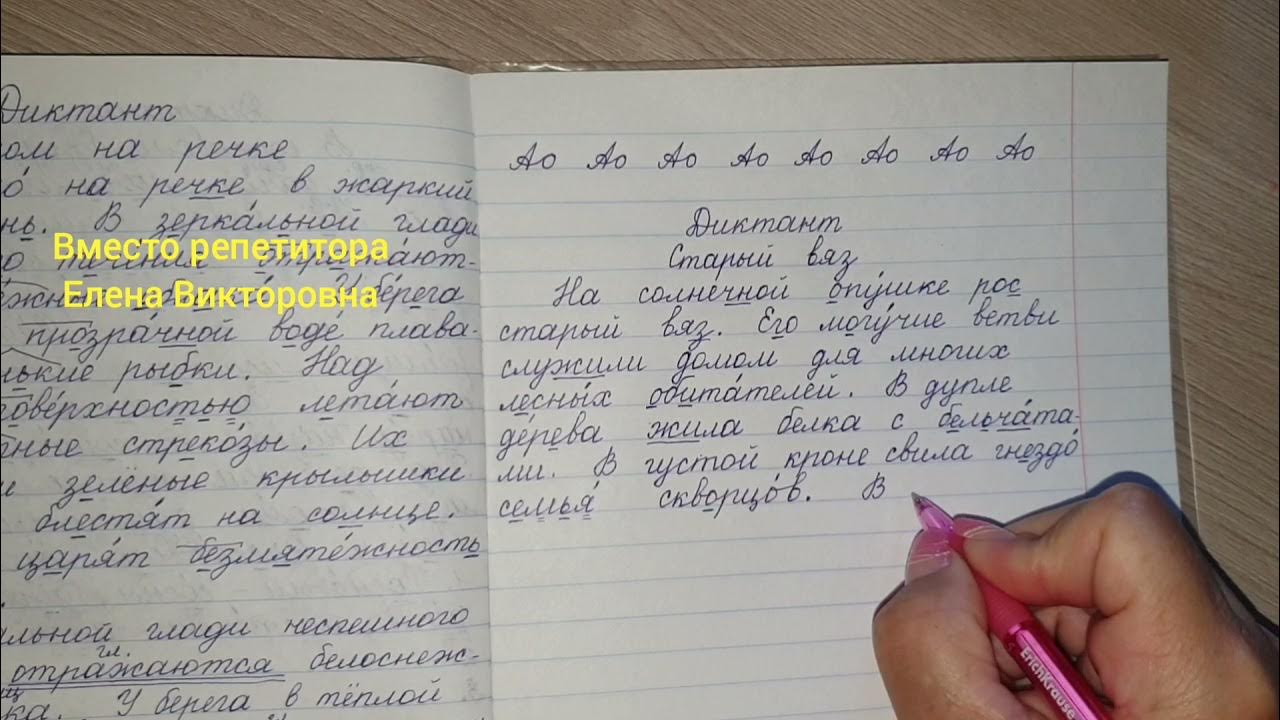 Диктант
ом на речке
о́ на речке в жаркий
нь. В зерка́льной глади
о течения отража́ют-
Вместо репетитора
Елена Викторовна
У бе́рега
прозра́чной воде́ плава-
нькие рыбки. Над
пове́рхностью лета́ют
тные стреко́зы. Их
и зелёные крылышки
блестя́т на солнце.
царя́т безмяте́жность
альной глади неспешного
гл.
отражаются белоснеж-
ка. У берега в тёплой
Ао Ао Ао Ао Ао Ао Ао Ао
Диктант
Старый вяз
На солнечной опу́шке рос
старый вяз. Его могу́чие ветви
служили домом для многих
лесны́х обита́телей. В дупле
де́рева жила белка с бельча́та-
ми. В густой кроне свила гнездо́
семья́ скворцо́в. В
ErichKrause